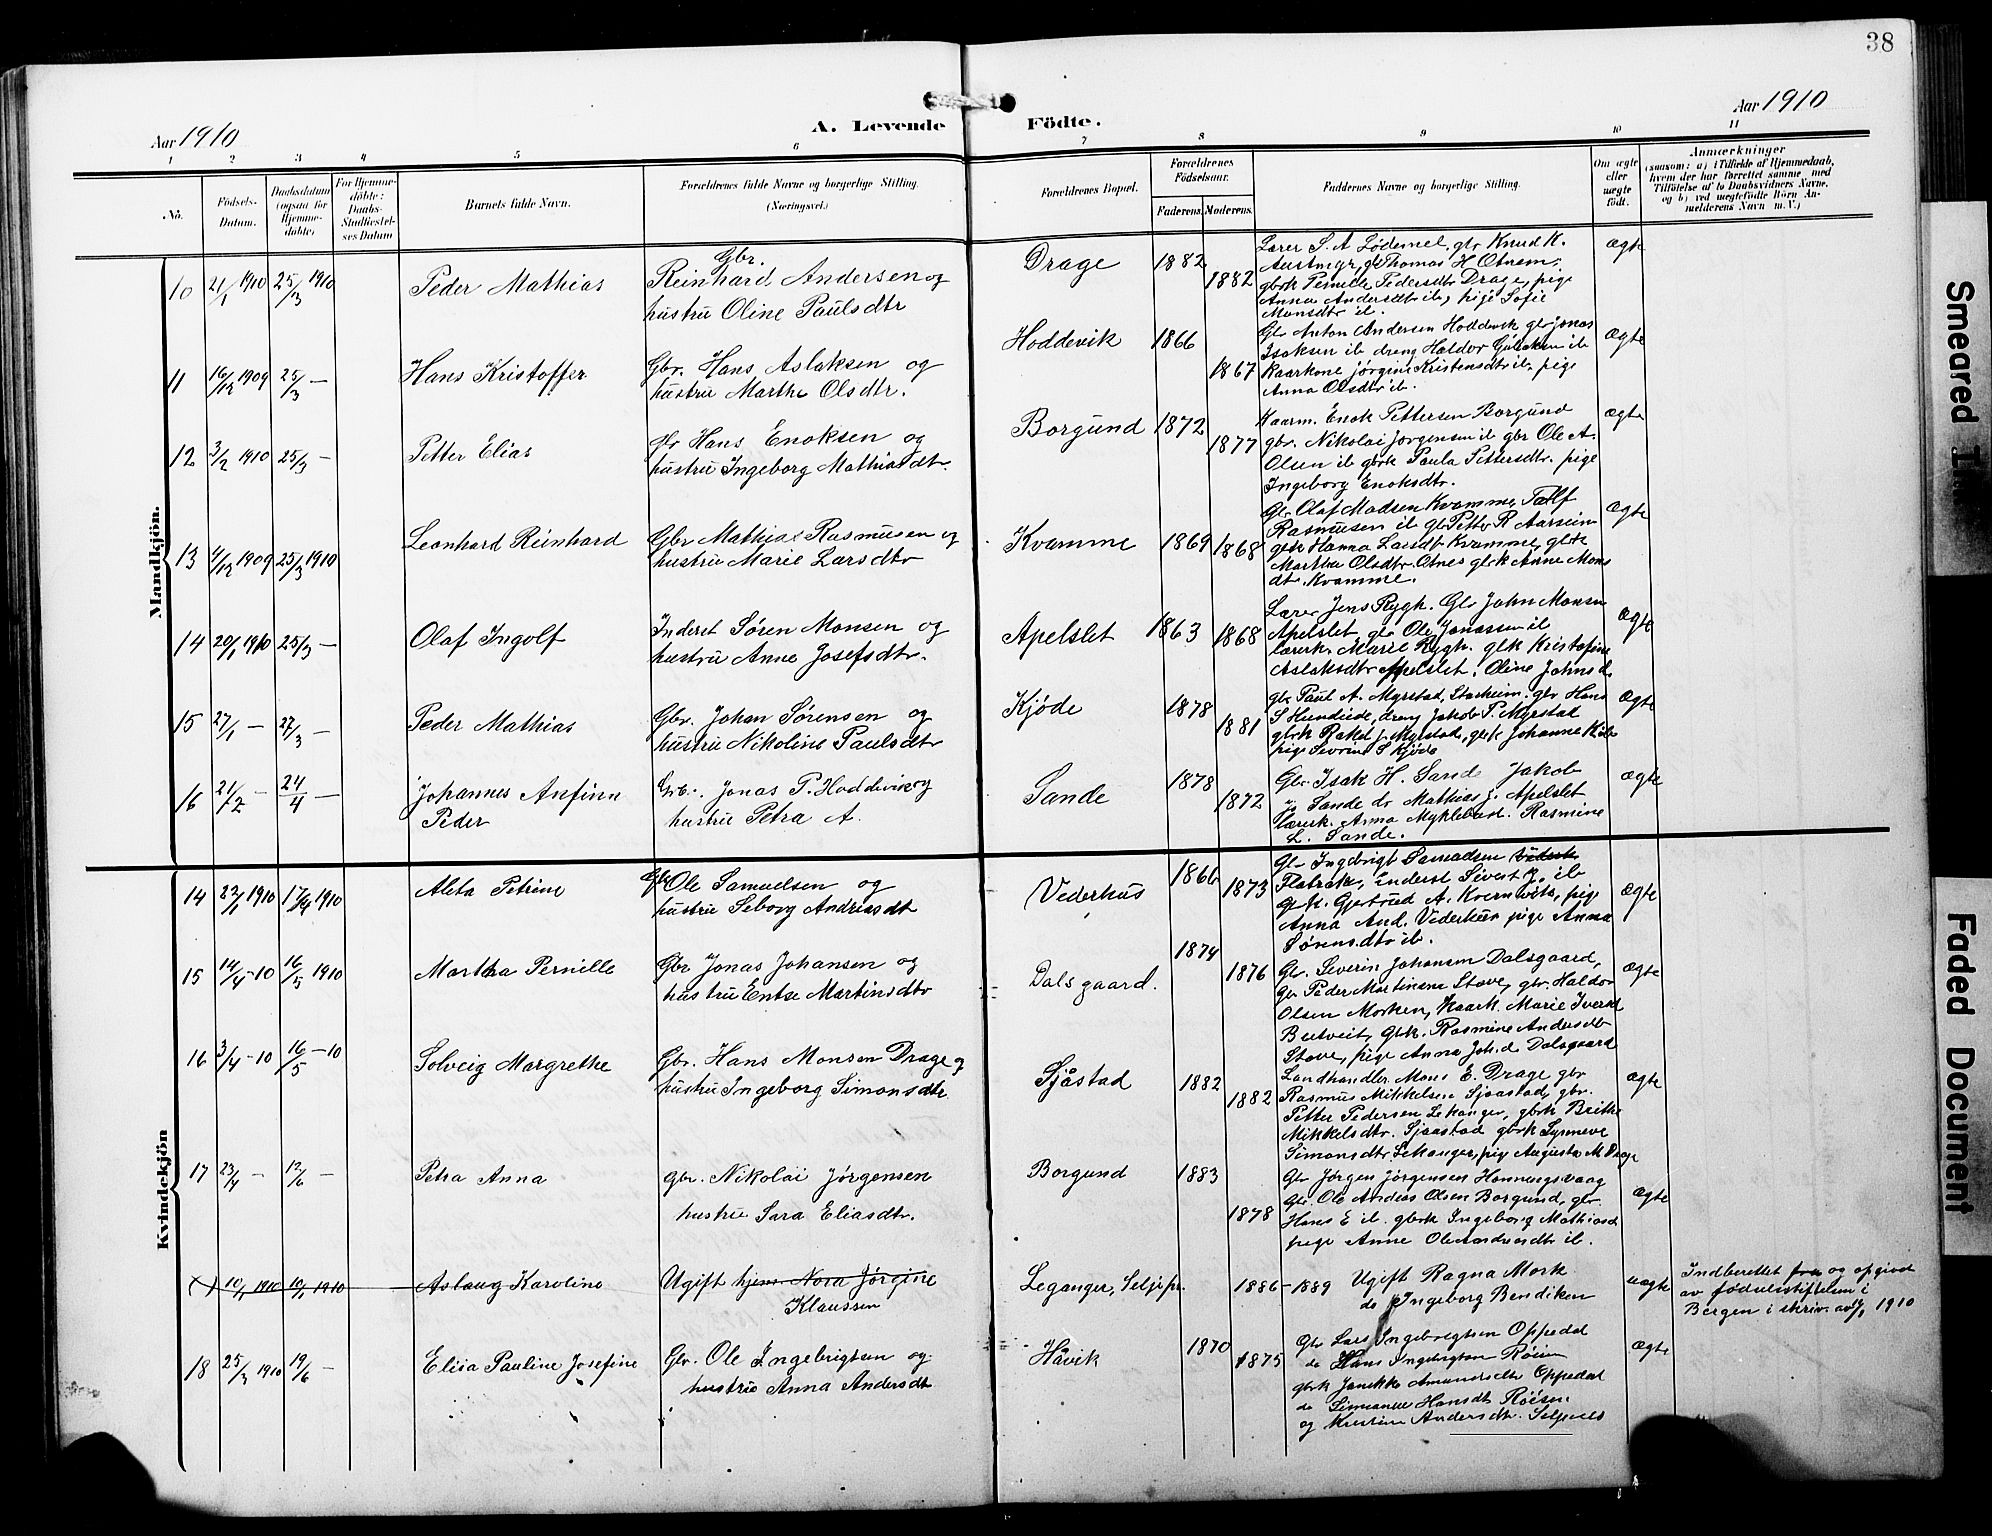 38
Aar 1910
A. Levende Födte.
Aar 1910
1 2 3 4 5 6 7 8 9 10 11
No.
Födsels-
Datum.
Daabsdatum
(ogsaa for
Hjemme-
döbte)
For Hjemme-
döbte:
Daabs-
Stadfæstel-
ses Datum
Barnets fulde Navn.
Forældrenes fulde Navne og borgerlige Stilling.
(Næringsvei.)
Forældrenes Bopæl.
Forældrenes
Födselsaar.
Faderens. Moderens.
Faddernes Navne og borgerlige Stilling.
Om ægte
eller
uægte
födt.
Anmærkninger
(saasom: a) i Tilfælde af Hjemmedaab,
hvem der har forrettet samme, med
Tilföielse af to Daabsvidners Navne,
og b) ved uægtefödte Börn An-
melderens Navn m. V.)
Mandkjön.
10 21/1 1910 25/3 1910 Peder Mathias
Gbr.
Reinhard Andersen og
hustru Oline Paulsdtr
Drage 1882 1882
Lærer S. A. Lødemel, gbr Knud K.
Austmyr, gbr Thomas H Otnem,
gbrk Pernille Pedersdtr Drage, pige
Anna Andersdtr ib, pige Sofie
Monsdtr ib.
ægte
11 16/12 1909 25/3 — Hans Kristoffer
Gbr. Hans Aslaksen og
hustru Marthe Olsdtr.
Hoddevik 1866 1867
Gbr Anton Andersen Hoddevik gbr Jonas
Isaksen ib dreng Haldor ib
Kaarkone Jørgine Kristensdtr ib, pige
Anna Olsdtr ib.
ægte
12 3/2 1910 25/3 — Petter Elias
gbr Hans Enoksen og
hustru Ingeborg Mathiasdtr.
Borgund 1872 1877
Kaarm. Enok Pettersen Borgund
gbr. Nikolai Jørgensen ib gbr Ole A.
Olsen ib gbrk Paula Pettersdtr. pige
Ingeborg Enoksdtr.
ægte
13 4/12 1909 25/3 1910 Leonhard Reinhard
Gbr Mathias Rasmusen og
hustru Marie Larsdtr
Kvamme 1869 1868
Gbr Olaf Madsen Kvamme
Rasmusen ib gbr Petter R Aarseim
gbrk Hanna Larsdtr Kvamme, gbrk
Marthe Olsdtr. Otnes gbrk Anne Mons
dtr. Kvamme.
ægte
14 20/1 1910 25/3 — Olaf Ingolf
Inderst Søren Monsen og
hustru Anne Josefsdtr.
Apelslet 1863 1868
Lærer Jens Rygh. Gbr John Monsen
Apelslet, gbr Ole Jonassen ib
lærerk. Marie Rygh. gbk Kristofine
Aslaksdtr Apelslet. Oline Johnsd.
ægte
15 27/1 — 27/3 — Peder Mathias
Gbr. Johan Sørensen og
hustru Nikoline Paulsdtr
Kjøde 1878 1881
gbr Paul A. Myrstad, Stadheim. gbr Hans
S Hundeide, dreng Jakob P. Myrstad
gbrk Rakel J. Myrstad, gbrk Johanne
pige Sevrine S Kjøde
ægte
16 21/2 — 24/4 — Johannes Anfinn
Peder
Grb. Jonas P. Hoddevik og
hustru Petra A.
Sande 1878 1872
Gbr Isak H. Sande Jakob
J. Sande do Mathias J. Apelslet
lærerk. Anna Myklebust. Rasmine
L. Sande.
ægte
Kvindekjön
14 22/1 1910 17/4 1910 Aleta Petrine
Gbr Ole Samuelsen og
hustru Seborg Andreasdt
Vederhus 1866 1873
Gbr Ingebrigt Samuelsen
Flatrak, Inderst Sivert J. ib
gbk. Gjertrud A. Kvernvik, pige
Anna And. Vederhus pige Anna
Sørensdtr ib.
ægte
15 14/4-10 16/5 1910 Martha Pernille
Gbr Jonas Johansen og
hustru Entse Martinsdtr
Dalsgaard. 1874 1876
Gbr. Severin Johansen Dalsgaard,
Gbr Peder Martinsen Stave, gbr. Haldor
Olsen Morken, Kaark. Marie Iversd
gbrk. Rasmine Andersdtr
Stave, pige Anna Joh.d. Dalsgaard
ægte
16 3/4-10 16/5-10 Solveig Margrethe
Gbr. Hans Monsen Drage og
hustru Ingeborg Simonsdtr
Sjåstad 1882 1882
Landhandler Mons E. Drage gbr
Rasmus Mikkelsen Sjaastad, gbr.
Petter Pedersen Lekanger, gbrk Brithe
Mikkelsdtr. Sjaastad gbrk Synneve
Simonsdtr. Lekanger, pige Augusta M. Drage
ægte
17 23/4 — 12/6 — Petra Anna
gbr. Nikolai Jørgensen
hustru Sara Eliasdtr.
Borgund 1883 1878
Gbr Jørgen Jørgensen Honningsvaag
Gbr. Ole Andreas Olsen Borgund, gbr.
Hans E ib. gbrk Ingeborg Mathiasd
pige Anne Oleandreasdtr ib.
ægte
10/1 1910 10/1 1910 Aslaug Karoline
Ugift hjem. Nora Jørgine
Klaussen
Leganger, Selje pr. 1886 - 1889
Ugift Ragna Mork
do Ingeborg Bendiken
uægte
Indberettet fra og opgivet
av fødselsstiftelsen i
Bergen i skriv. av 1910
18 25/3 1910 19/6 — Elisa Pauline Josefine
Gbr. Ole Ingebrigtsen og
hustru Anna Andersdt
Håvik 1870 1875
Gbr Lars Ingebrigtsen Oppedal
do Hans Ingebrigtsen Røisen
gbrk Janikke Amundsdtr Oppedal
do Simeanne Hansdt Røisen
og Kristine Andersdtr.
ægte
Smeared
Faded Document